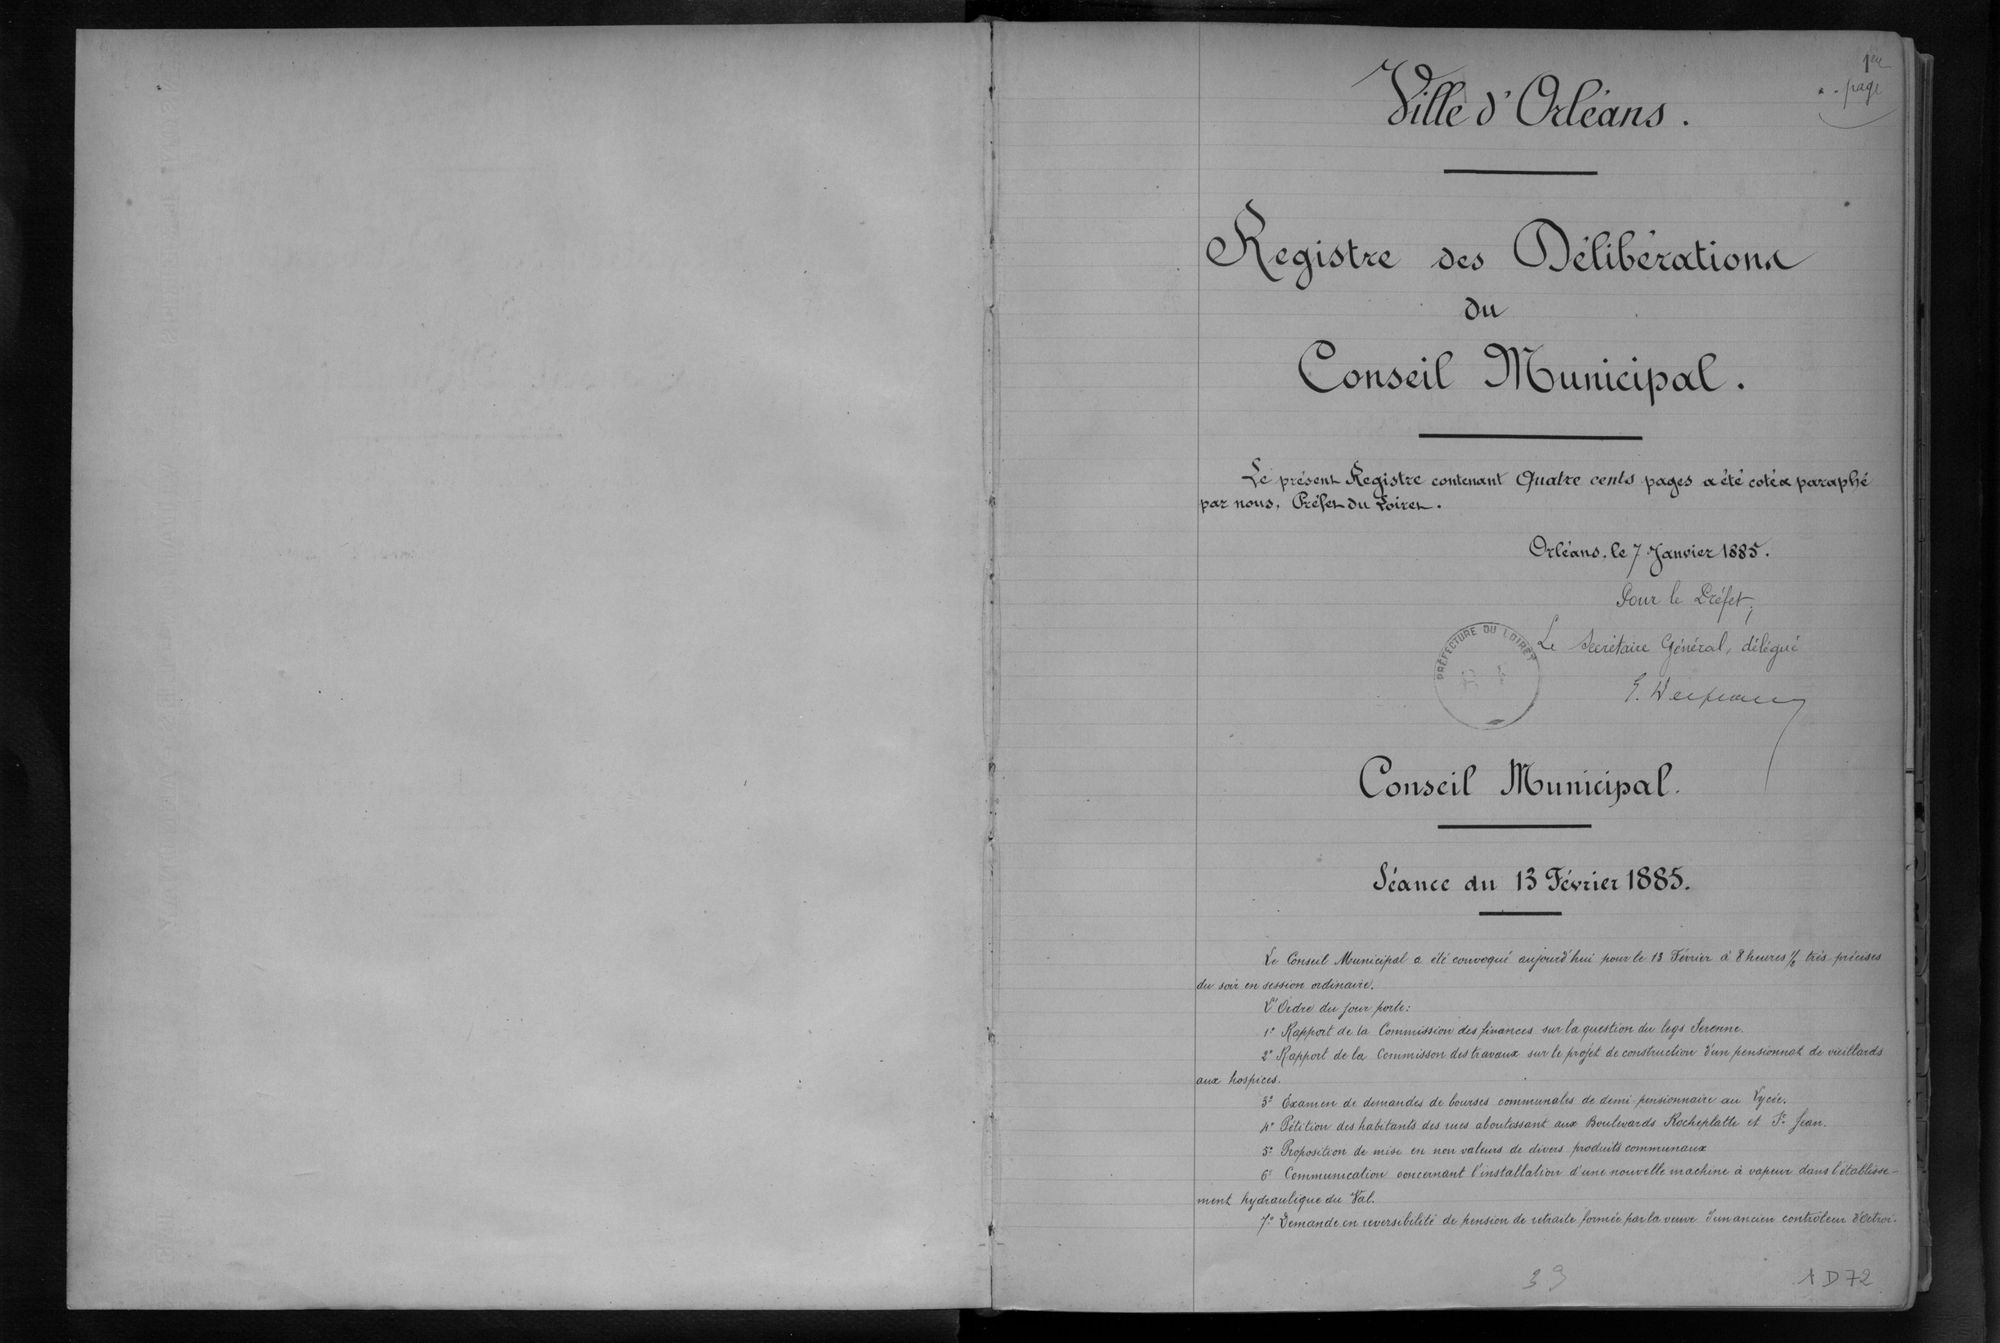 1ère
page
Ville d'Orléans.
Registre des Délibérations
du
Conseil Municipal.
Le présent Registre contenant Quatre cents pages a été coté & paraphé
par nous, Préfet du Loiret.
Orléans, le 7 Janvier 1885.
Pour le Préfet,
Le Secrétaire Général, délégué
PRÉFECTURE DU LOIRET
Conseil Municipal.
Séance du 13 Février 1885.
Le Conseil Municipal a été convoqué aujourd'hui pour le 13 Février à 8 heures ½ très précises
du soir en session ordinaire.
L'Ordre du jour porte:
1° Rapport de la Commission des finances sur la question du legs Serenne.
2° Rapport de la Commisson des travaux sur le projet de construction d'un pensionnat de vieillards
aux hospices.
3° Examen de demandes de bourses communales de demi pensionnaire au Lycée.
4° Pétition des habitants des rues aboutissant aux Boulevards Rocheplatte et St Jean.
5° Proposition de mise en non valeurs de divers produits communaux
6° Communication concernant l'installation d'une nouvelle machine à vapeur dans l'établisse-
ment hydraulique du Val.
7° Demande en reversibilité de pension de retraite formée par la veuve d'un ancien contrôleur d'Octroi.
33
1 D 72